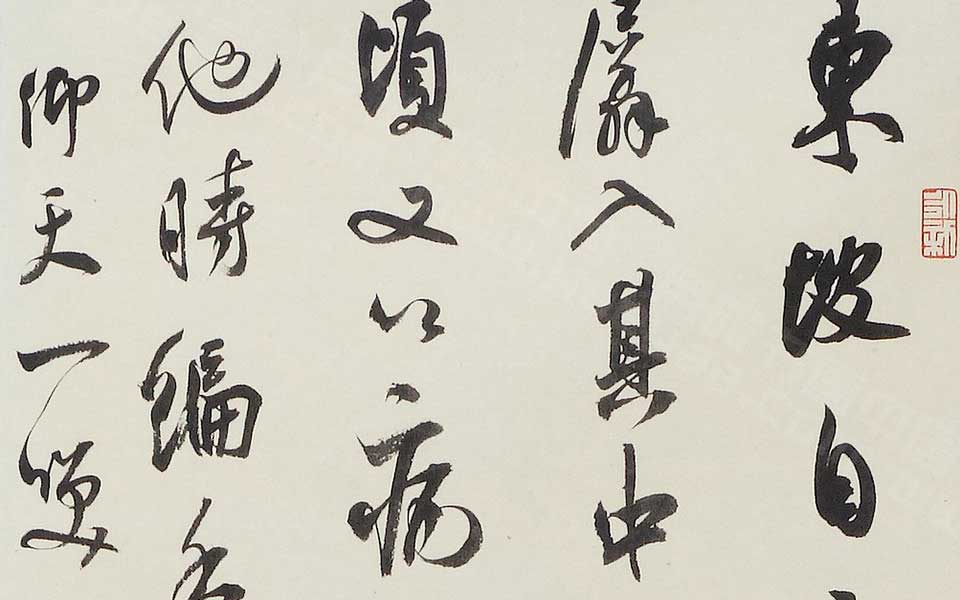 東坡自
羼入其中
頃又以病
他時編
仰天一